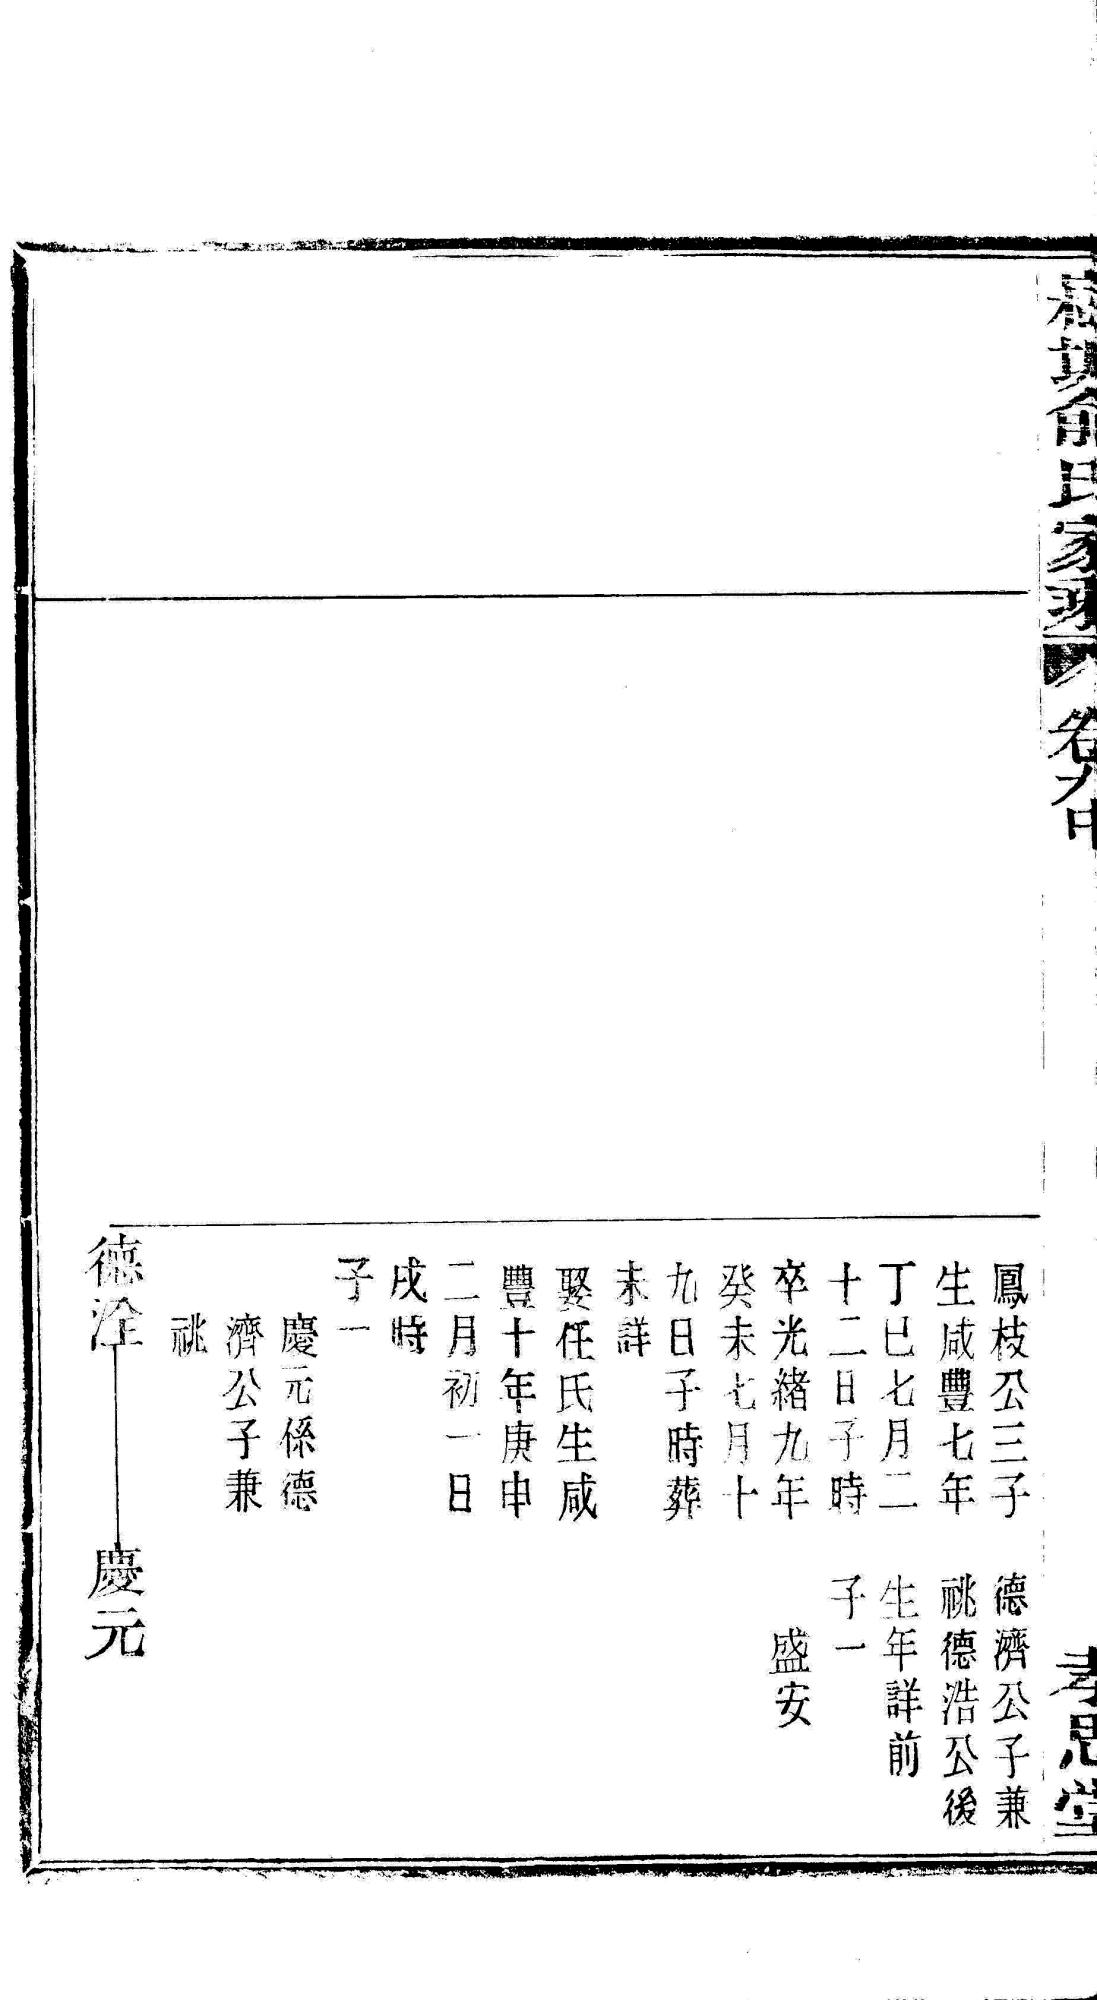 俞氏家乘
卷九中
孝思堂
鳳枝公三子
生咸豐七年
丁巳七月二
十二日子時
卒光緒九年
癸未七月十
九日子時葬
未詳
娶任氏生咸
豐十年庚申
二月初一日
戌時
子一
慶元係德
濟公子兼
祧
德濟公子兼
祧德浩公後
生年詳前
子一
盛安
德洤
慶元